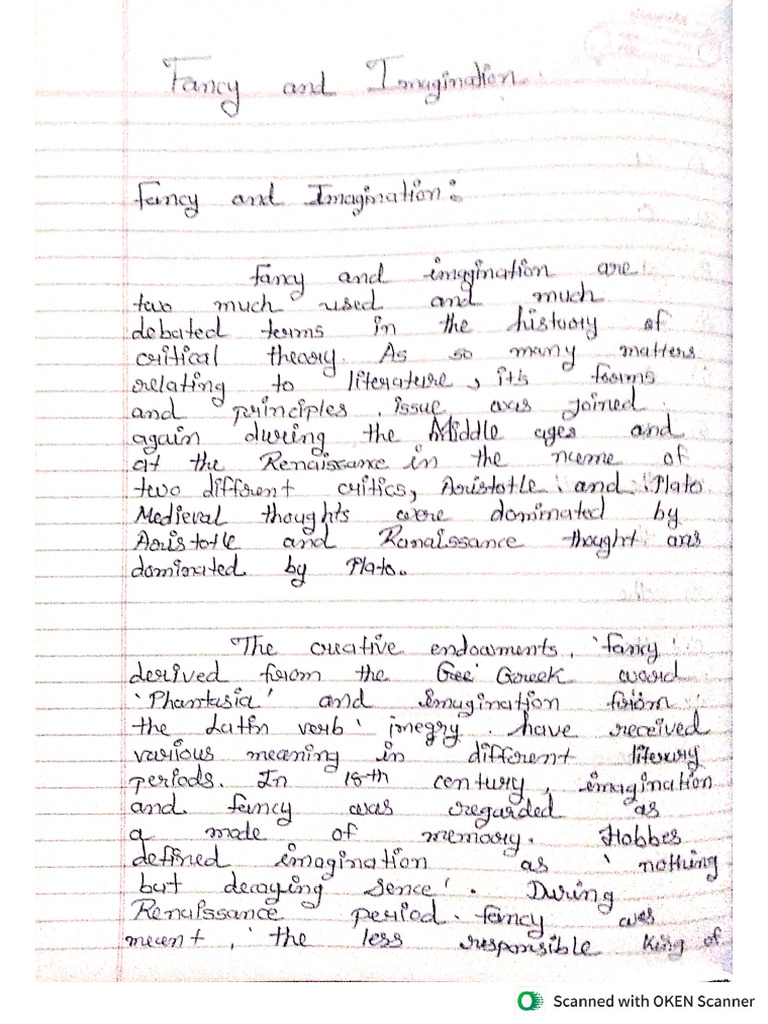 Fancy and Imagination.
Fancy and Imagination:
Fancy and imagination are
two much used and much
debated terms in the history of
critical theory. As so many matters
relating to literature, its forms
and principles. issue was joined
again during the Middle ages and
at the Renaissance in the name of
two different critics, Aristotle and Plato
Medieval thoughts were dominated by
Aristotle and Ranaissance thought
dominated by Plato.
The creative endowments, 'fancy'
derived from the Gree Greek word
'Phantasia' and Imugination from
the Latin verb have received
various meaning in different literary
periods. In 18th century, imagination
and fancy was regarded as
a made of memory. Hobbes
defined imagination as 'nothing
but decaying Sence'. During
Renaissance period. fancy was
meant, 'the less responsible king of
Scanned with OKEN Scanner